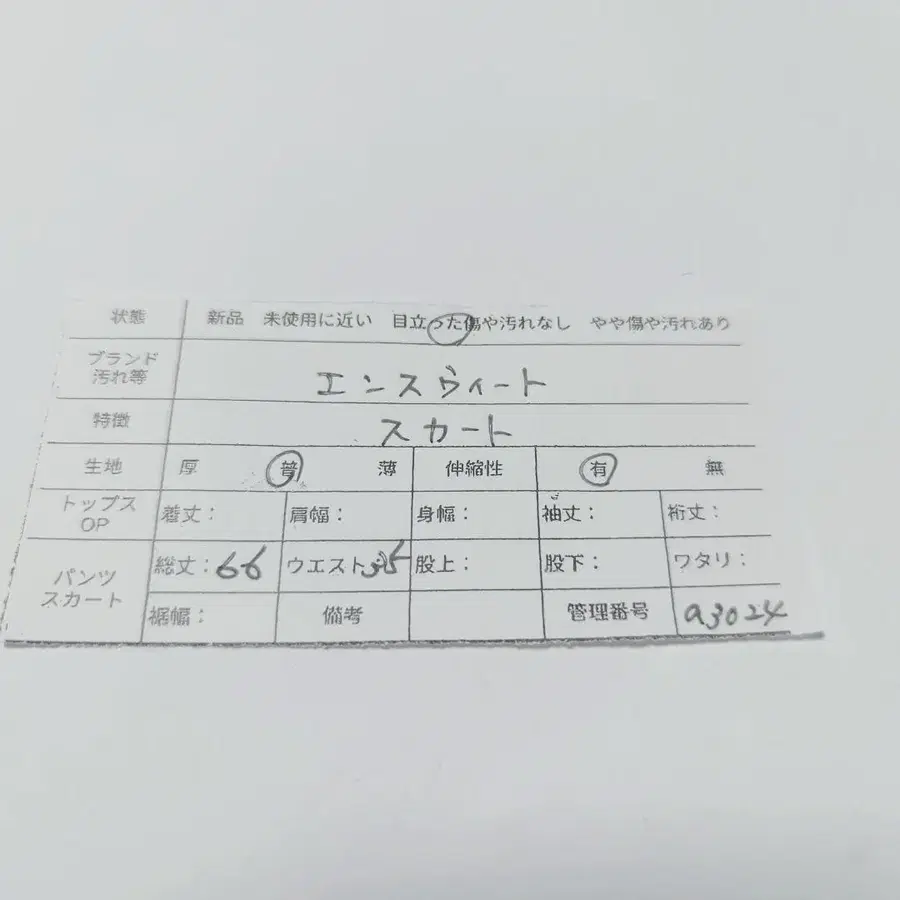 状態 新品 未使用に近い 目立った傷や汚れなし やや傷や汚れあり
ブランド
汚れ等 エンスウィート
特徴 スカート
生地 厚 普 薄 伸縮性 有 無
トップス
OP 着丈： 肩幅： 身幅： 袖丈： 裄丈：
パンツ
スカート 総丈：66 ウエスト35 股上： 股下： ワタリ：
裾幅： 備考 管理番号 a3024